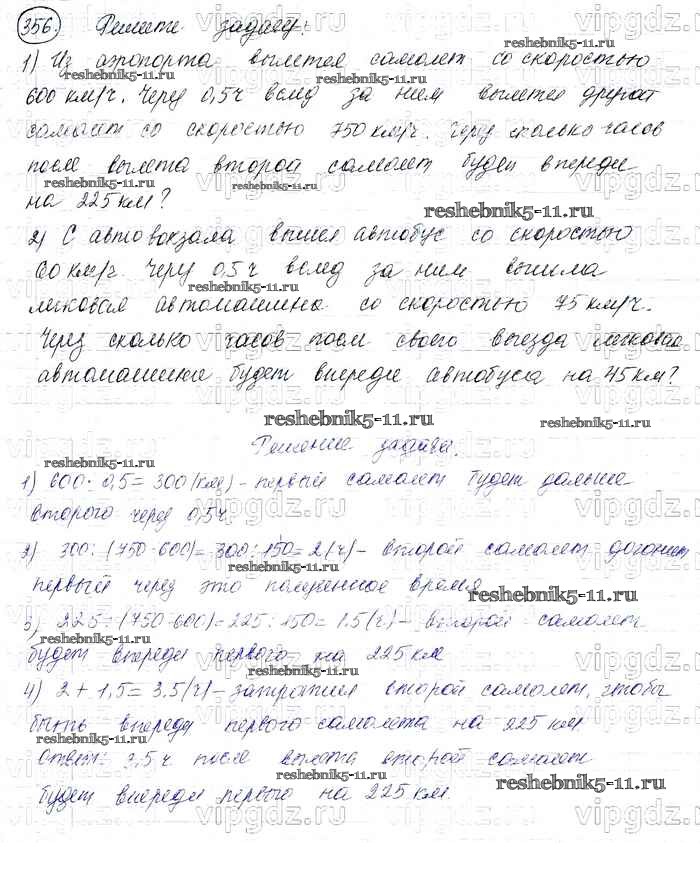 356. Решите задачу:
1) Из аэропорта вылетел самолет со скоростью
600 км/ч. Через 0,5 ч вслед за ним вылетел другой
самолет со скоростью 750 км/ч. Через сколько часов
после вылета второй самолет будет впереди
на 225 км?
2) С автовокзала вышел автобус со скоростью
60 км/ч. Через 0,5 ч вслед за ним вышла
легковая автомашина со скоростью 75 км/ч.
Через сколько часов после своего выезда легковая
автомашина будет впереди автобуса на 45 км?
Решение задачи.
1) 600 · 0,5 = 300 (км) - первый самолет будет дальше
второго через 0,5ч.
2) 300 : (750-600) = 300 : 150 = 2 (ч) - второй самолет догонит
первый через это полученное время
3) 225 : (750-600) = 225 : 150 = 1.5 (ч) - второй самолет
будет впереди первого на 225 км
4) 2 + 1,5 = 3.5 (ч) - затратил второй самолет, чтобы
быть впереди первого самолета на 225 км
Ответ: 3,5 ч после вылета второй самолет
будет впереди первого на 225 км.
reshebnik5-11.ru
vipgdz.ru